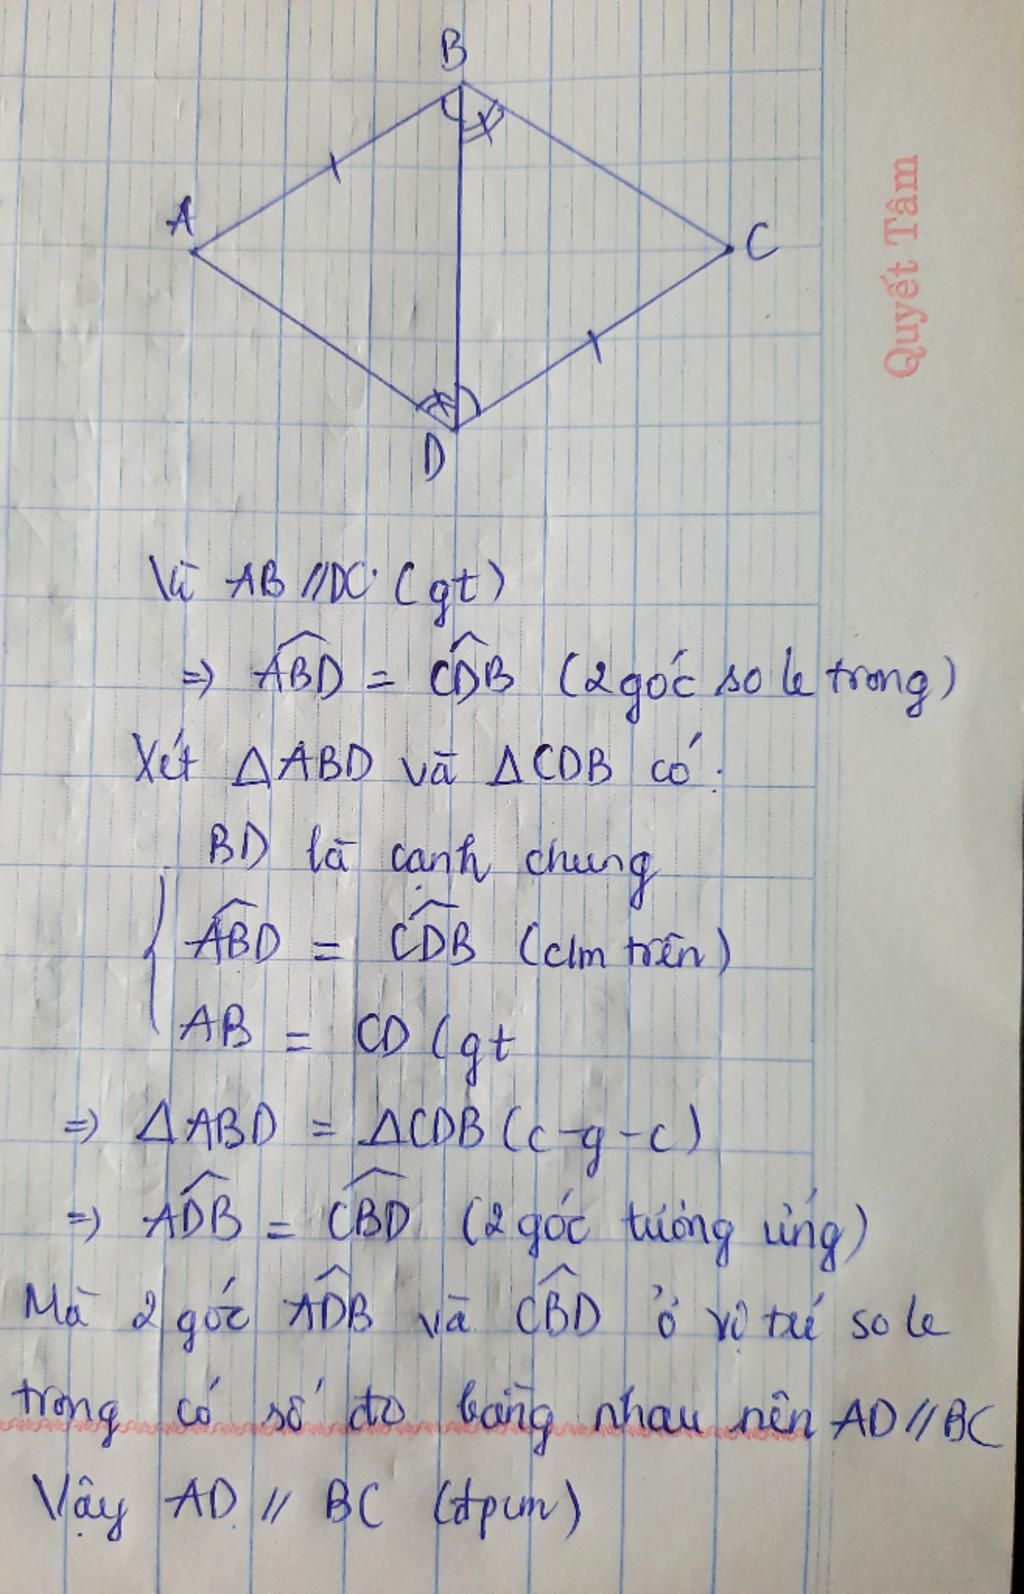 B
A
C
D
Quyết Tâm
Vì AB // DC (gt)
=> \widehat{ABD} = \widehat{CDB} (2 góc so le trong)
Xét ΔABD và ΔCDB có:
BD là cạnh chung
\widehat{ABD} = \widehat{CDB} (c/m trên)
AB = CD (gt
=> ΔABD = ΔCDB (c-g-c)
=> \widehat{ADB} = \widehat{CBD} (2 góc tương ứng)
Mà 2 góc \widehat{ADB} và \widehat{CBD} ở vị trí so le
trong có số đo bằng nhau nên AD // BC
Vậy AD // BC (đpcm)